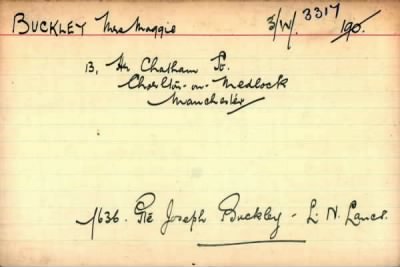 BUCKLEY Mrs Maggie 3/W/. 3317 190.
13, Hr Chatham St.
Chorlton-on-Medlock
Manchester
1636. Pte Joseph Buckley - L. N. Lancs.